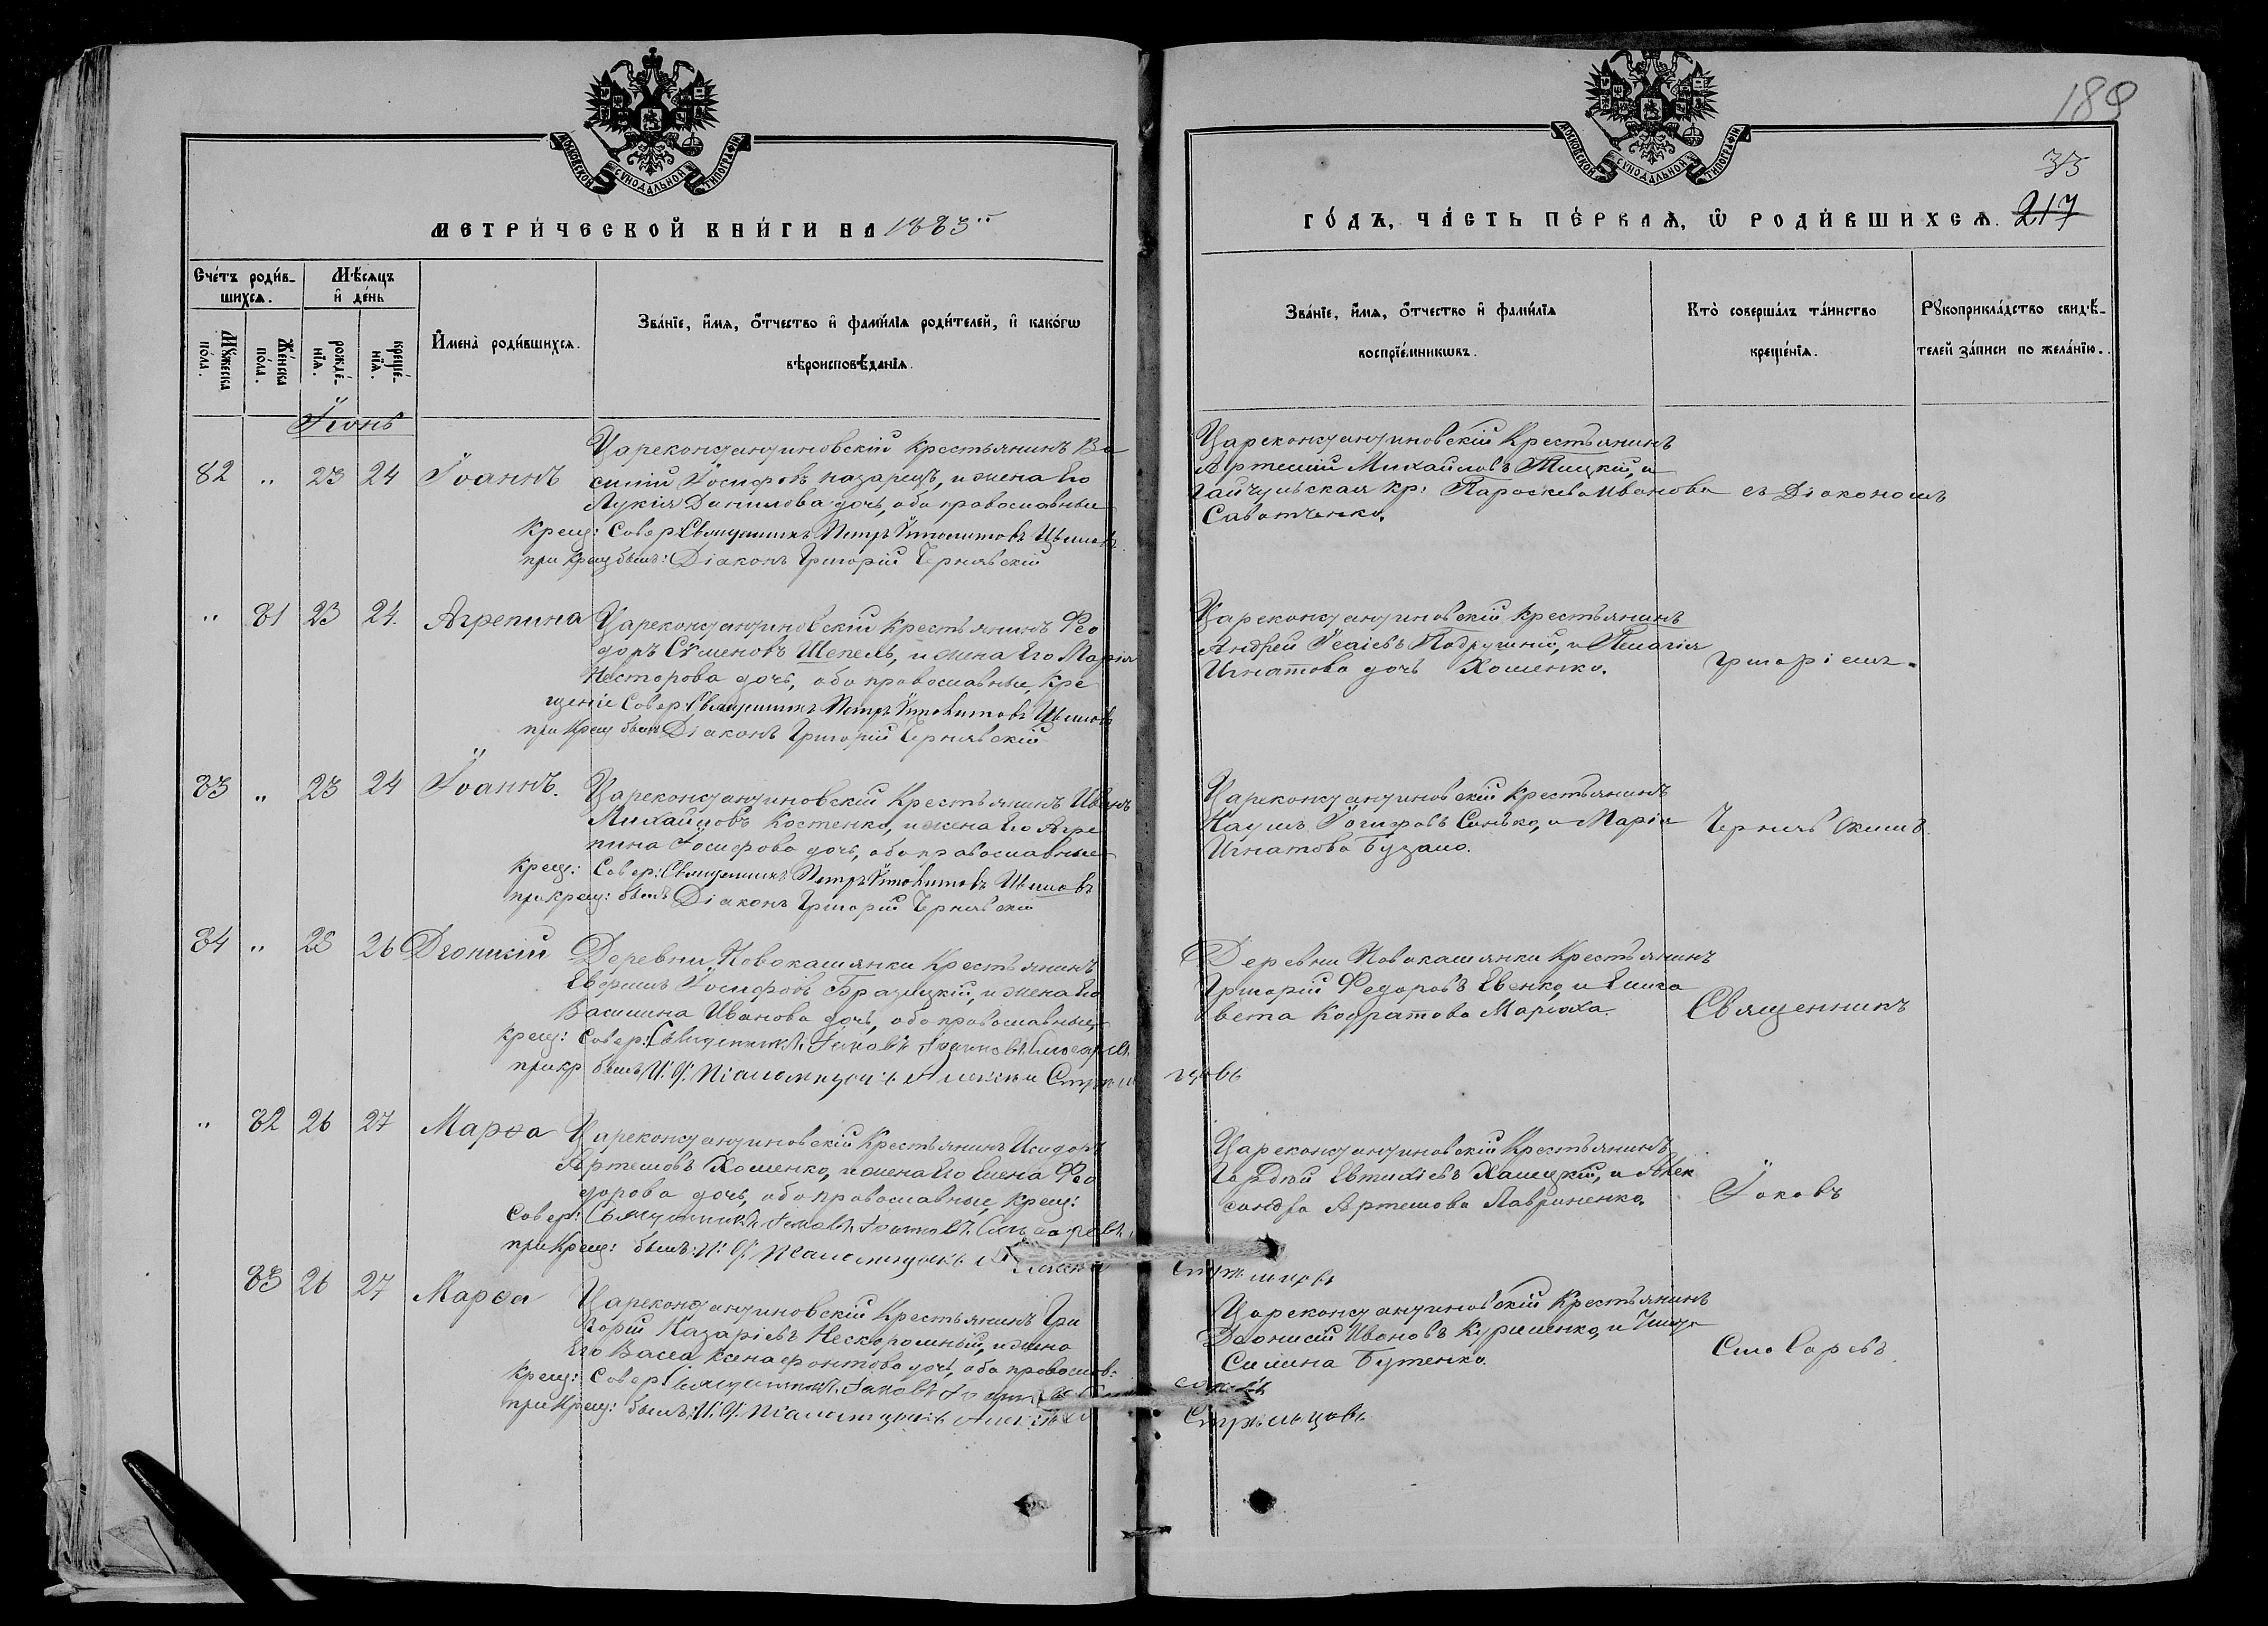 189
33
217
МОСКОВСКОЙ СУНОДАЛЬНОЙ ТИПОГРАФІИ
МЕТРИ́ЧЕСКОЙ КНИ́ГИ НА 1883
Сче́тъ роди́в-
шихся.
Мѣ́сяцъ
и҆ де́нь
Мꙋ́жеска
по́ла.
Же́нска
по́ла.
рожде́-
нїѧ.
креще́-
нїѧ.
И҆мена̀ роди́вшихсѧ.
Зва́нїе, и҆́мѧ, ѻ҆́тчество и҆ фамі́лїѧ роди́телей, и҆ како́гѡ
вѣроисповѣ́данїѧ.
Іюнь
82 " 23 24 Іоаннъ
Цареконстантиновскій Крестьянинъ Ва
силій Іосифовъ назарецъ, и жена Его
Лукія Данилова дочь, оба православные
Крещ: Совер: Священникъ Петръ
при Крещ былъ: Діаконъ Григорій Чернявскій
" 81 23 24. Агрепина
Цареконстантиновскій Крестьянинъ Фео
доръ Сѵменовъ Шепель, и жена Его Марія
Несторова дочь, оба православные, Кре
щеніе Совер: Священникъ Петръ
при Крещ былъ Діаконъ Григорій Чернявскій
83 " 23 24 Іоаннъ.
Цареконстантиновскій Крестьянинъ Иванъ
Михайловъ Костенко, и жена Его Агре
пина Іосифова дочь, оба православные
Крещ: Совер: Священникъ Петръ
при Крещ: былъ Діаконъ Григорій Чернявскій
84 " 25 26 Діонисій
Деревни Новокашлянки Крестьянинъ
Іосифовъ и жена Его
Василина Иванова дочь, оба православные,
Крещ: Совер: Священникъ Іаковъ
при кр былъ И. Д. Псаломщика Алексѣй Стрѣль
цовъ
" 82 26 27 Марѳа
Цареконстантиновскій Крестьянинъ Исидоръ
Артемовъ Хоменко, и жена Его Елена Фео
дорова дочь, оба православные, Крещ:
Совер: Священникъ Іаковъ
при Крещ: былъ: И. Д. Псаломщика
Стрѣльцовъ
83 26 27 Марѳа
Цареконстантиновскій Крестьянинъ Гри
горій Назаріевъ Нескоромный, и жена
Его Васса Ксенафонтова дочь, оба православ:
Крещ: Совер: Священникъ Іаковъ
при Крещ: былъ: И. Д. Псаломщика Алексѣй
Стрѣльцовъ
МОСКОВСКОЙ СУНОДАЛЬНОЙ ТИПОГРАФІИ
ГО́ДЪ, ЧА́СТЬ ПЕ́РВАѦ, Ѽ РОДИ́ВШИХСѦ.
Зва́нїе, и҆́мѧ, ѻ҆́тчество и҆ фамі́лїѧ
воспрїе́мникѡвъ.
Кто̀ соверша́лъ та́инство
креще́нїѧ.
Рꙋкоприкла́дство свидѣ́-
телей за́писи по жела́нїю.
Цареконстантиновскій Крестьянинъ
Артемій Михайловъ и
Гайчульская Кр: Параскева Иванова
Саватченко.
съ Діакономъ
Цареконстантиновскій Крестьянинъ
Андрей Исаіевъ и Пелагія
Игнатова дочь Хоменко.
Григоріемъ
Цареконстантиновскій Крестьянинъ
Наумъ Іосифовъ Синько, и Марія
Игнатова Бузало.
Чернявскимъ.
Деревни Новокашлянки Крестьянинъ
Григорій Федоровъ Евенко, и Елиса
вета Кодратова Марюха.
Священникъ
Цареконстантиновскій Крестьянинъ
Гордѣй Евтихіевъ и Алек
сандра Артемова Лавриненко.
Іаковъ
Цареконстантиновскій Крестьянинъ
Діонисій Ивановъ Куриленко, и
Силина Бутенко.